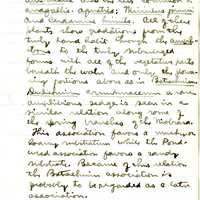 anagallis-aquatica; Mimulus jamesii
and Cardamine hirsuta. All of these
plants show gradations from the
truly land habit through the amphi-
bious to the truly submerged
forms with all of the vegetative parts
beneath the water and only the flower-
ing portions above as in Batrachium
Divaricatum. an
amphibious sedge is seen in a
similar relation along some of
the spring branches of the Niobrara.
This association favors a mucky or
loamy substratum while the Pond-
weed association favors a sandy
substrate. Because of this relation
the Batrachium association is
probably to be regarded as a later
association.